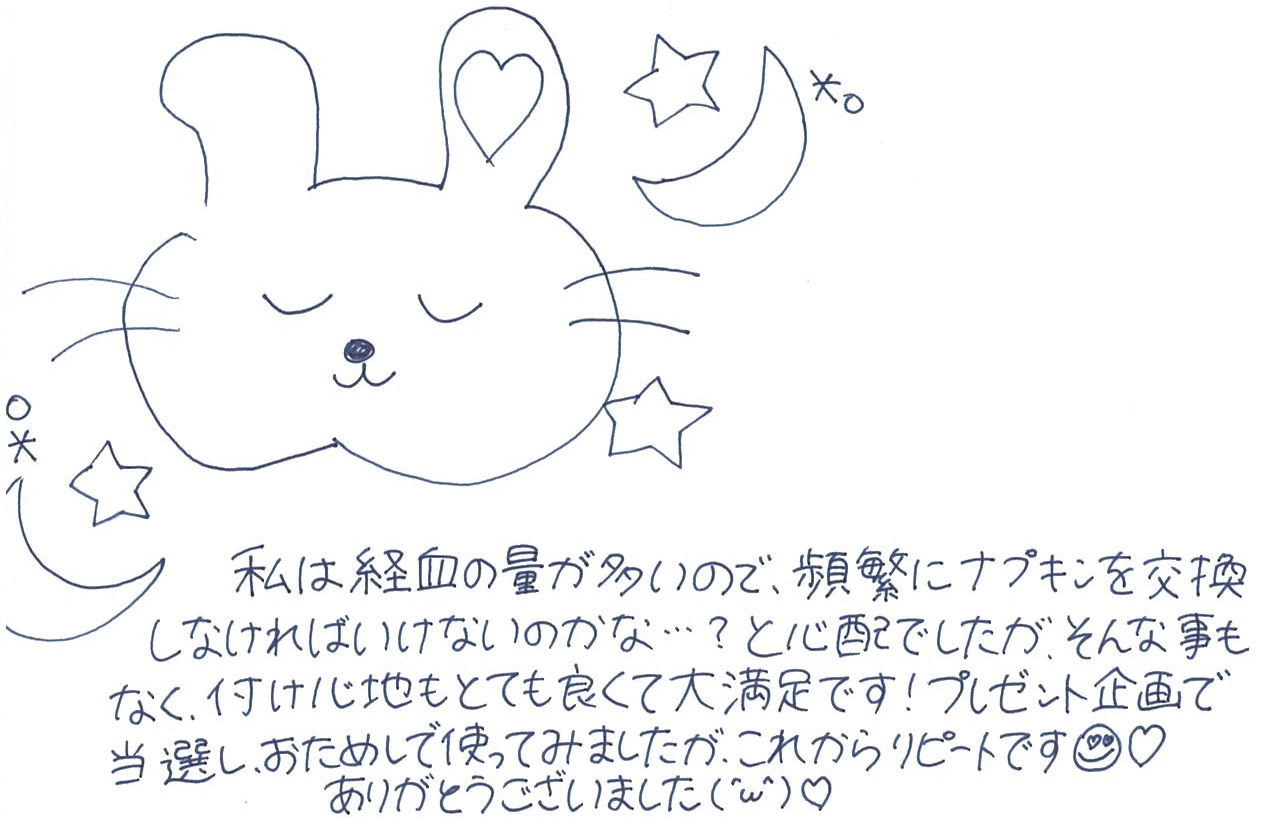 私は経血の量が多いので、頻繁にナプキンを交換
しなければいけないのかな…？と心配でしたが、そんな事も
なく、付け心地もとても良くて大満足です！プレゼント企画で
当選し、おためしで使ってみましたが、これからリピートです😍♡
ありがとうございました(^ω^)♡